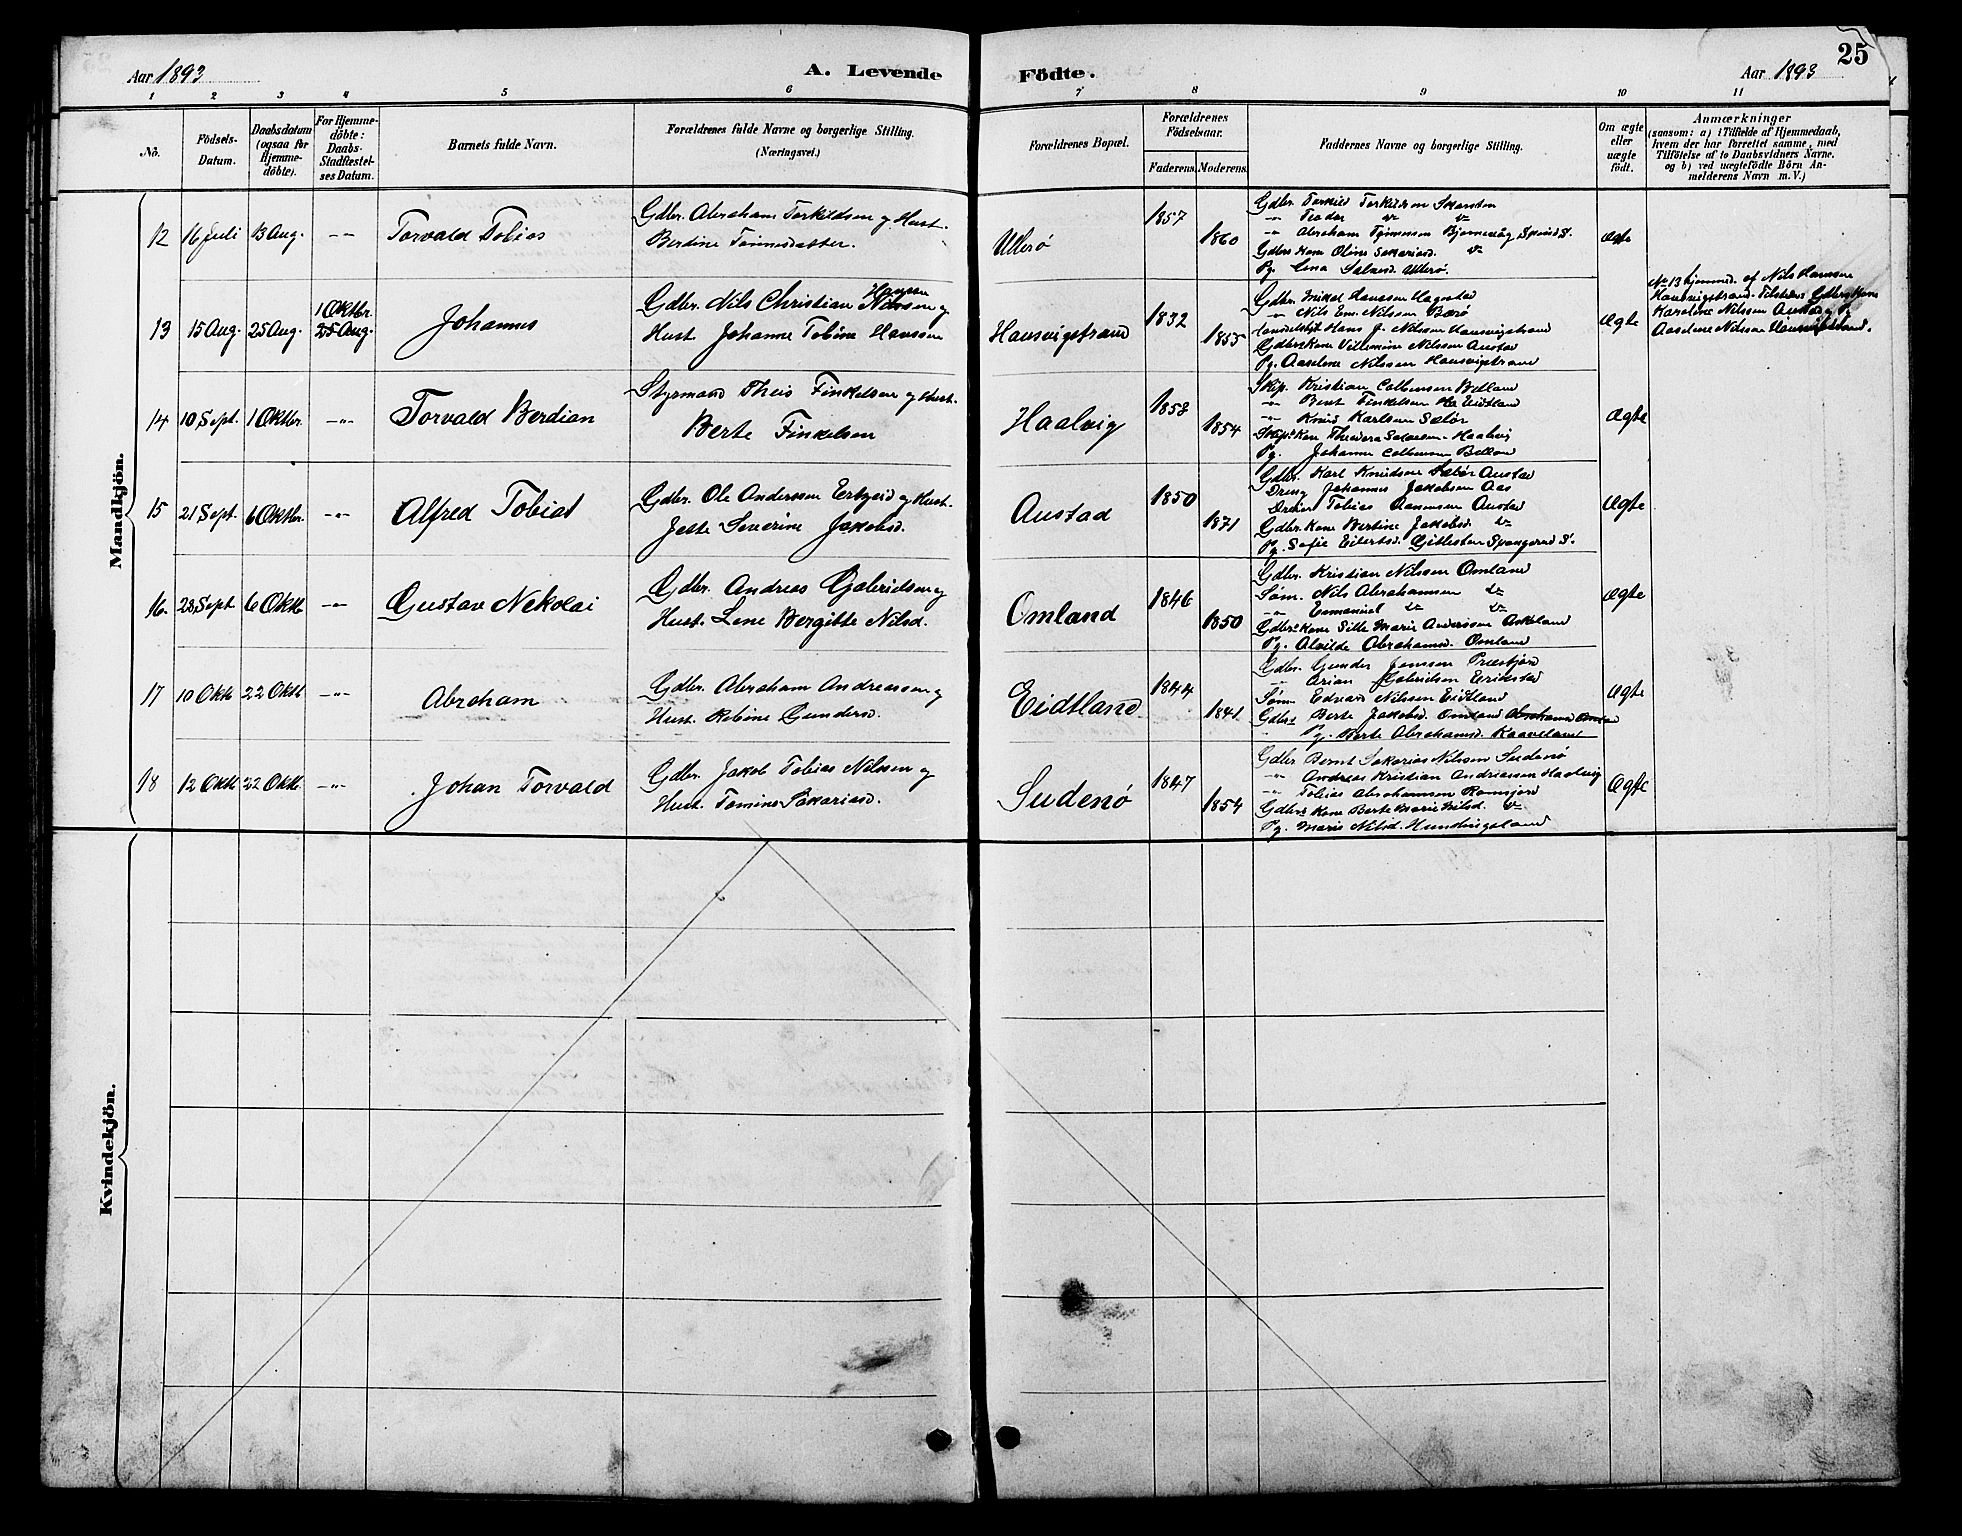 25
Aar 1893
A. Levende
Födte.
Aar 1893
1 2 3 4 5 6 7 8 9 10 11
No.
Födsels-Datum.
Daabsdatum (ogsaa for Hjemmedöbte).
For Hjemmedöbte: Daabs-Stadfæstelses Datum.
Barnets fulde Navn.
Forældrenes fulde Navne og borgerlige Stilling. (Næringsvei.)
Forældrenes Bopæl.
Forældrenes Födselsaar.
Faderens. Moderens.
Faddernes Navne og borgerlige Stilling.
Om ægte eller uægte födt.
Anmærkninger
(saasom: a) i Tilfælde af Hjemmedaab,
hvem der har forrettet samme, med
Tilföielse af to Daabsvidners Navne,
og b) ved uægtefödte Börn Anmelderens Navn m. V.)
Mandkjön.
12 16 Juli 13 Aug. -"- Torvald Tobias
Gdbr. Abraham Torkildsen og Hust.
Bertine Tønnesdatter.
Ullerø 1857 1860
Gdbr. Torkild Torkildsen Skarstein
-"- Teodor
-"- Abraham Tønnesen Bjørnevåg Spind S.
Gdbrs Kone Oline Sakariasd.
Pg. Lina Salvesd. Ullerø.
Ægte
13 15 Aug. 25 Aug. 1 Oktbr. 25 Aug. Johannes
Gdbr. Nils Christian Nilsen Hansen og
Hust. Johanne Tobine Hanssen
Hausvigstrand 1832 1855
Gdbr. Mikal Hanssen Hagestad
-"- Nils Em. Nilssen Bærø
Hans J. Nilssen Hausvigstrand
Gdbrs Kone Villemine Nilssen Austad
Pg. Aaselene Nilssen Hausvigstrand
Ægte
No 13 hjemmed. af Nils Hanssen
Hausvigstrand. Tilstede: Gdbrs Kone
Karoline Nilssen Austad, Pg
Aaselene Nilssen Hausvigstrand.
14 10 Sept. 1 Oktbr. -"- Torvald Berdian
Styrmand Theis Finkelsen og Hust.
Berte Finkelsen
Haalvig 1858 1854
Skip. Kristian Colbensen Belland
-"- Bent Finkelsen Eidtland
-"- Knud Karlsen Sæbør
Skips Kone Theodora Salvesen Haalvig
Pg. Johanne Colbensen Belland
Ægte
15 21 Sept. 6 Oktbr. -"- Alfred Tobias
Gdbr. Ole Anderssen Erkjeid og Hust.
Jette Severine Jakobsd.
Austad 1850 1871
Gdbr. Karl Knudsen Sæbør Austad
Dreng Johannes Jakobsen Aas
Dreng Tobias Aanensen Austad
Gdbr. Kone Bertine Jakobsd.
Pg. Sofie Eilertsd. Gitlestan Spangereid S.
Ægte
16 28 Sept. 6 Oktb -"- Gustav Nekolai
Gdbr. Andreas Gabrielsen og
Hust. Lene Bergitte Nilsd.
Omland 1846 1850
Gdbr. Kristian Nilssen Omland
Søn. Nils Abrahamsen
-"- Emanuel
Gdbrs Kone Sille Marie Anderssen Askeland
Pg. Alvilde Abrahamsd. Omland
Ægte
17 10 Oktb 22 Oktb -"- Abraham
Gdbr. Abraham Andreassen og
Hust. Rebine Gundersd.
Eidtland 1844 1841
Gdbr. Gunder Jonssen Præstjord
-"- Arian Gabrielsen Erikstad
Søn Edvard Nilssen Eidtland
Gdbrs Berte Jakobsd. Omland
Pg. Berte Abrahamsd. Kaaveland
Ægte
18 12 Oktb 22 Oktb. -"- Johan Torvald
Gdbr. Jakob Tobias Nilssen og
Hust. Tomine Sakariasd.
Sudenø 1847 1854
Gdbr. Bernt Sakarias Nilssen Sudenø
-"- Andreas Kristian Andreassen Haalvig
-"- Tobias Abrahamsen Ramsjord
Gdbrs Kone Berte Marie Nilsd.
Pg. Marie Nilsd. Hundingsland
Ægte
Kvindekjön.